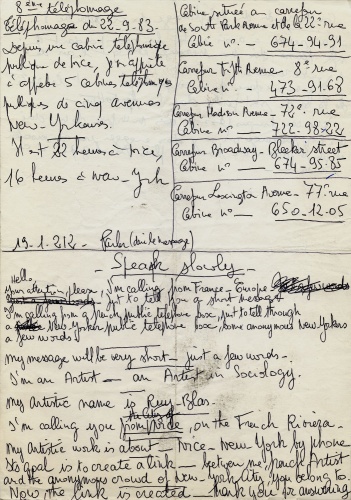 8ème téléphonage
téléphonage du 22-9-83.
Depuis une cabine téléphonique
publique de Nice, j'en appelle
à 5 cabines téléphoniques
publiques de cinq avenues
New-Yorkaises.
Il est 22 heures à Nice,
16 heures à New-York
19.1.212. - Parler (dire le message)
Cabine située au carrefour
de South Park Avenue et de la 22° rue
Cabine n°. - 674-94-91
Carrefour Fifth Avenue - 8° rue
Cabine n°. - 473-91.68
Carrefour Madison Avenue - 72° rue
Cabine n° - 722-98-22
Carrefour Broadway - Bleeker street
Cabine n° - 674-95.85
Carrefour Lexington Avenue - 77° rue
Cabine n° - 650-12.05
- Speak slowly -
Hello,
your attention, please, I'm calling from France - Europe -
just to tell you a short message
I'm calling from a french public telephone box, just to tell through
a New Yorker public telephone box, some anonymous New-Yorkers
a few words
My message will be very short - just a few words -
I'm an Artist - an Artist in Sociology.
My Artistic name is Ruy-Blas.
the city of
I'm calling you from Nice, on the French Riviera.
My Artistic work is about - Nice - New York by phone
Its goal is to create a link - between me, french Artist
and the anonymous crowd of New-York city you belong to.
Now the link is created - thank you to anonymous